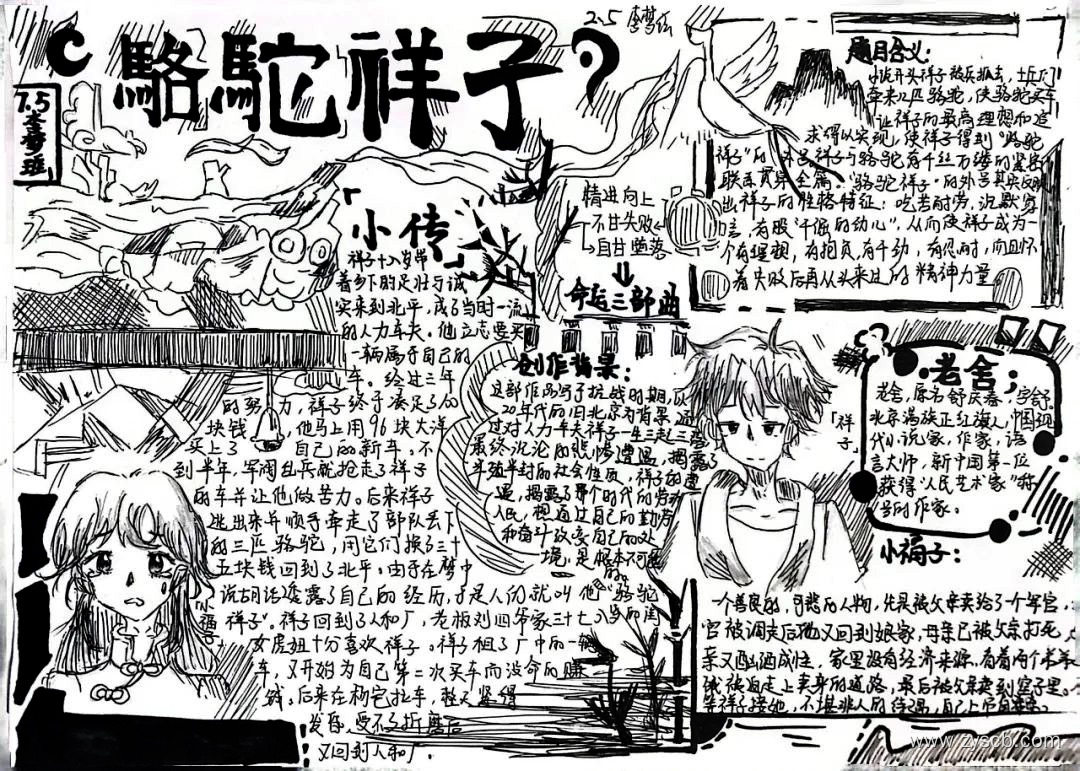 駱駝祥子
2.5
7.5
班
小传
祥子十八岁带
着乡下的足壮与诚
实来到北平,成了当时一流
的人力车夫。他立志要买
一辆属于自己的
车。经过三年
的努力,祥子终于凑足了100
块钱,他马上用96块大洋
买上了自己的新车。不
到半年,军阀乱兵就抢走了祥子
的车并让他做苦力。后来祥子
逃出来并顺手牵走了部队丢下
的三匹骆驼,用它们换了三十
五块钱回到了北平。由于在梦中
说胡话透露了自己的经历,于是人们就叫他"骆驼
祥子"。祥子回到了人和厂,老板刘四爷家三十七八岁的闺
女虎妞十分喜欢祥子。祥子租了厂中的一辆
车,又开始为自己第二次买车而没命的赚
钱。后来在杨宅拉车,整天累得
发昏,受不了折磨后
又回到人和厂。
小福子
精进向上
不甘失败
自甘堕落
命运三部曲
创作背景:
这部作品写于抗战时期,以
20年代的旧北京为背景,通
过对人力车夫祥子一生三起三落
最终沉沦的悲惨遭遇,揭露了
半殖半封的社会性质,祥子的遭
遇,揭露了那个时代的劳动
人民,想通过自己的勤劳
和奋斗改变自己的处
境,是根本不可能
的。
题目含义:
小说开头祥子被兵抓去,
牵来几匹骆驼,使骆驼买车
让祥子的最高理想和追
求得以实现,使祥子得到"骆驼
祥子"的外号祥子与骆驼有千丝万缕的紧密
联系贯穿全篇。"骆驼祥子"的外号其实反映
出祥子的性格特征:吃苦耐劳,沉默寡
言,有股"千倔的劲心",从而使祥子成为一
个有理想,有抱负,有干劲,有忍耐,而且怀
着失败后再从头来过的精神力量
「祥子」
老舍;
老舍,原名舒庆春,字舒
北京满族正红旗人,中国现
代小说家,作家,语
言大师,新中国第一位
获得"人民艺术家"称
号的作家。
小福子:
一个善良的,可悲的人物,先是被父亲卖给了个军官,
官被调走后她又回到娘家,母亲已被父亲打死,
亲又酗酒成性,家里没有经济来源,看着两个弟弟
饿被迫走上卖身的道路,最后被父亲卖到窑子里。
等祥子接她,不堪非人的待遇,自己上吊自尽。
www.zyscb.com